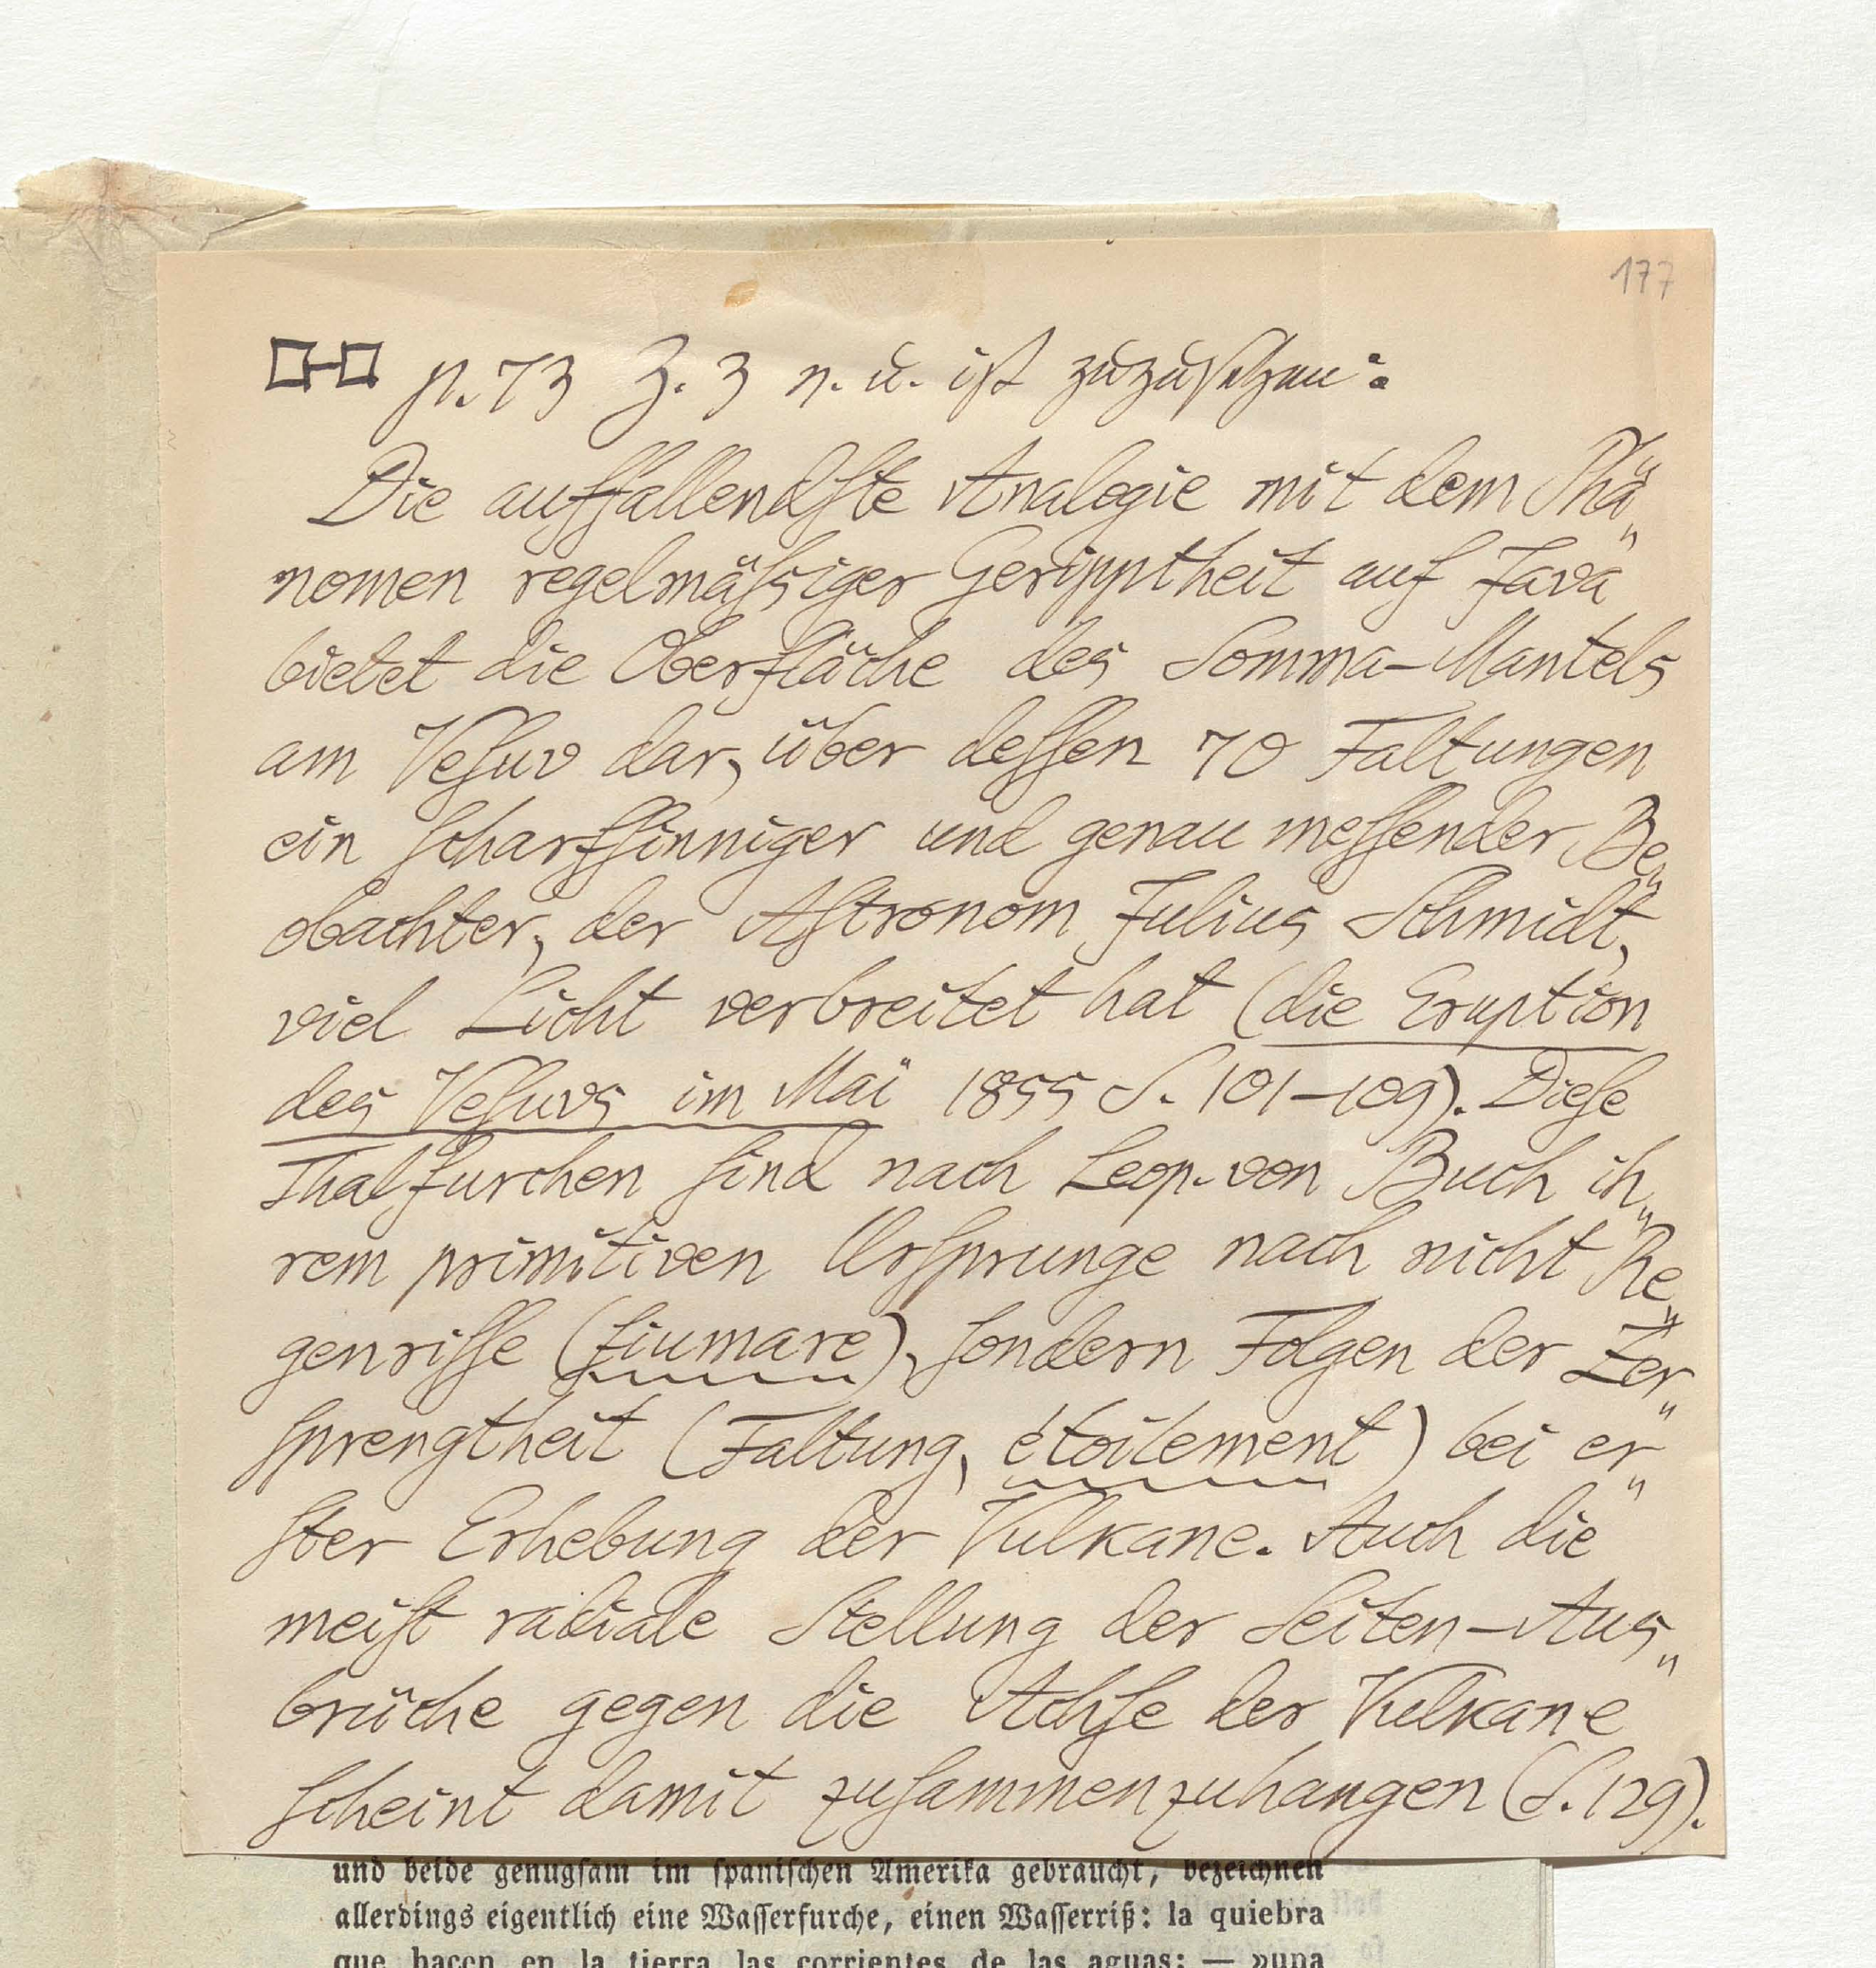 177
p. 73 Z. 3 v. u. ist zuzusetzen:
Die auffallendſte Analogie mit dem Phä„
nomen regelmäſsiger Geripptheit auf Java
bietet die Oberfläche des Somma-Mantels
am Veſuv dar, über deſſen 70 Faltungen
ein ſcharfſinniger und genau meſſender Be„
obachter, der Aſtronom Julius Schmidt,
viel Licht verbreitet hat (die Eruption
des Veſuvs im Mai 1855 S. 101–109). Dieſe
Thalfurchen ſind nach Leop. von Buch ih„
rem primitiven Urſprunge nach nicht Re„
genriſſe (fiumare), ſondern Folgen der Zer„
ſprengtheit (Faltung, étoilement) bei er„
ſter Erhebung der Vulkane. Auch die
meiſt radiale Stellung der Seiten-Aus„
brüche gegen die Achſe der Vulkane
ſcheint damit zuſammenzuhangen (S. 129).
und beide genugſam im ſpaniſchen Amerika gebraucht, bezeichnen
allerdings eigentlich eine Waſſerfurche, einen Waſſerriß: la quiebra
que hacen en la tierra las corrientes de las aguas; — »una